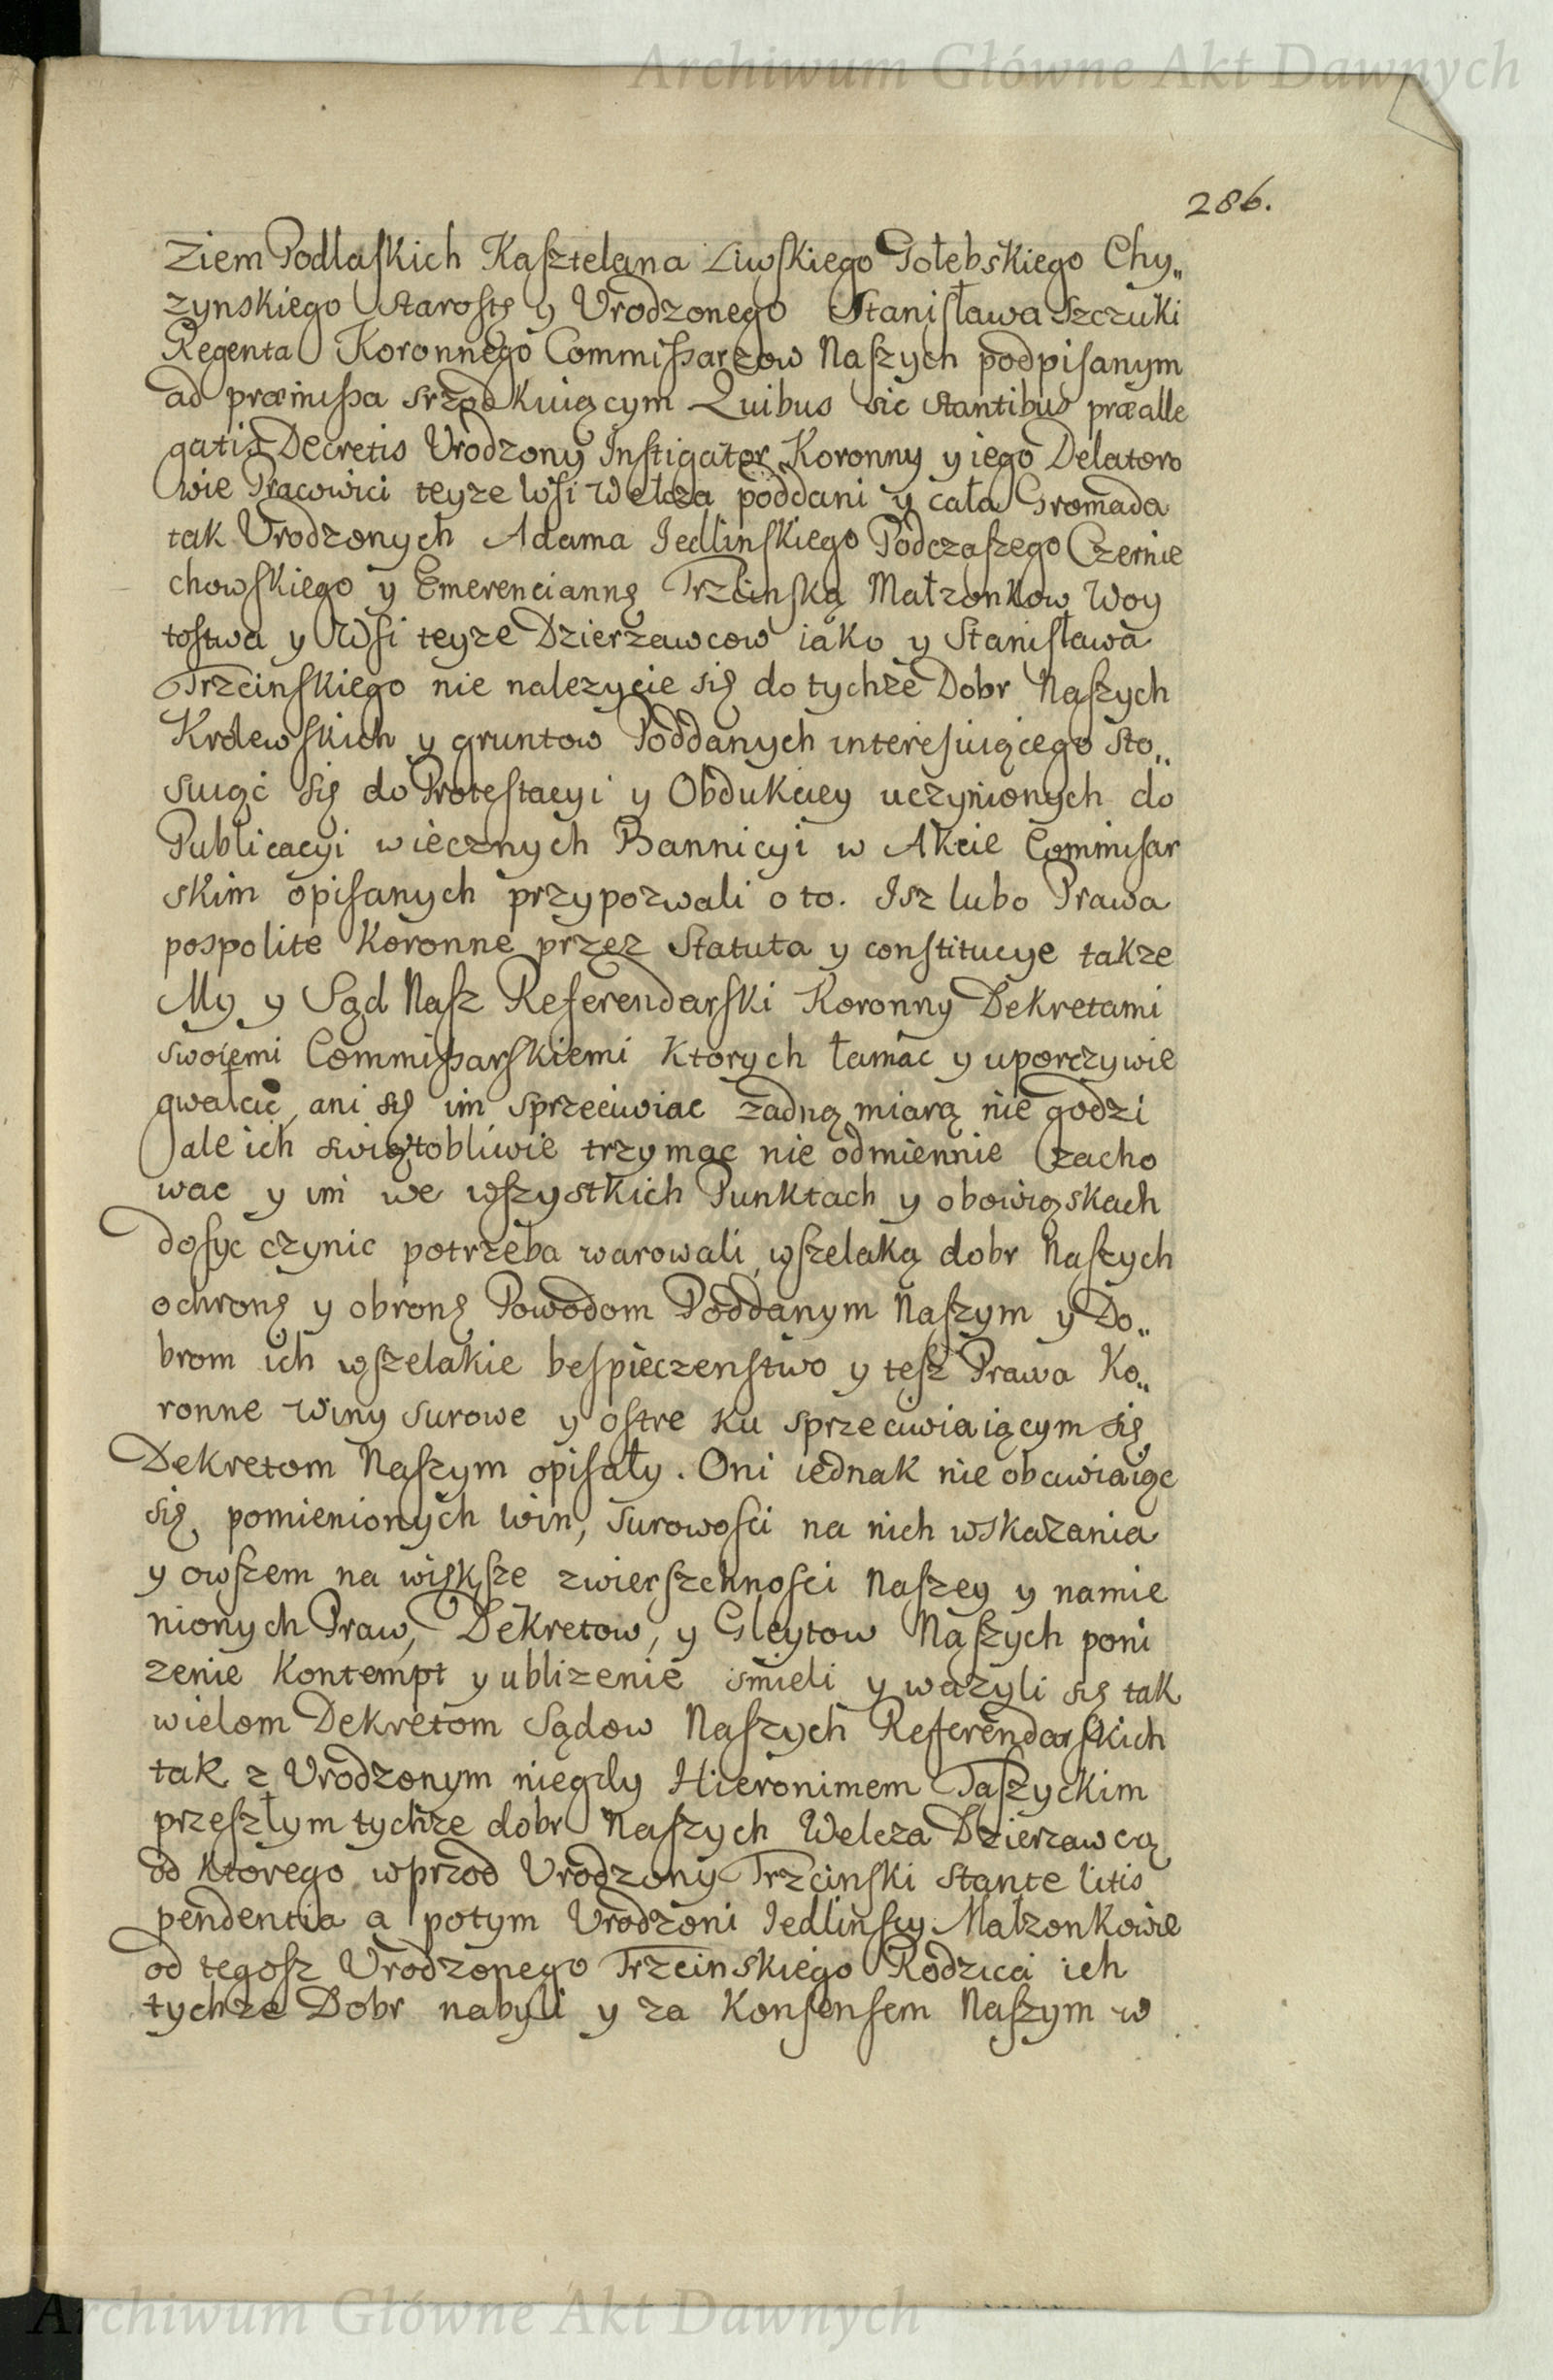 Archiwum Główne Akt Dawnych
286.
Ziem Podlaskich Kasztelana Liwskiego Gołebskiego Chy„
zynskiego Starostę y Urodzonego Stanisława Szczuki
Regenta Koronnego Commissarzow Naszych podpisanym
ad præmissa srzodkuiącym Quibus sic stantibus præalle
gatis Decretis Urodzony Instigator Koronny y iego Delatoro
wie Pracowici teyze Wsi Wełcza poddani y cała Gromada
tak Urodzonych Adama Jedlinskiego Podczaszego Czernie
chowskiego y Emerenciannę Trzcinską Małzonkow Woy
tostwa y Wsi teyze Dzierzawcow iako y Stanisława
Trzcinskiego nie nalezycie się do tychze Dobr Naszych
Krolewskich y gruntow Poddanych interesuiącego Sto„
suiąc się do Protestacyi y Obdukciey uczynionych do
Publicacyi wiecznych Bannicyi w Akcie Commisar
skim opisanych przypozwali o to. Isz lubo Prawa
pospolite Koronne przez Statuta y constitucye takze
My y Sąd Nasz Referendarski Koronny Dekretami
swoiemi Commissarskiemi Ktorych łamac y uporczywie
gwałcic, ani się im sprzeciwiac zadną miarą nie godzi
ale ich swiątobliwie trzymac nie odmiennie zacho
wac y im we wszystkich Punktach y obowiąskach
dosyc czynic potrzeba warowali, wszelaką dobr Naszych
ochronę y obronę Powodom Poddanym Naszym y Do„
brom ich wszelakie bespieczenstwo y tesz Prawa Ko„
ronne Winy surowe y ostre ku sprzeciwiaiącym się
Dekretom Naszym opisały. Oni iednak nie obawiaiąc
się pomienionych win, surowosci na nich wskazania
y owszem na większe zwierszchnosci Naszey y namie
nionych Praw, Dekretow, y Gleytow Naszych poni
zenie Kontempt y ublizenie smieli y wazyli się tak
wielom Dekretom Sądow Naszych Referendarskich
tak z Urodzonym niegdy Hieronimem Taszyckim
przeszłym tychze dobr Naszych Welcza Dzierzawcą
od Ktorego wprzod Urodzony Trzcinski stante litis
pendentia a potym Urodzoni Jedlinscy Małzonkowie
od tegosz Urodzonego Trzcinskiego Rodzica ich
tychze Dobr nabyli y za Konsensem Naszym w
Archiwum Główne Akt Dawnych